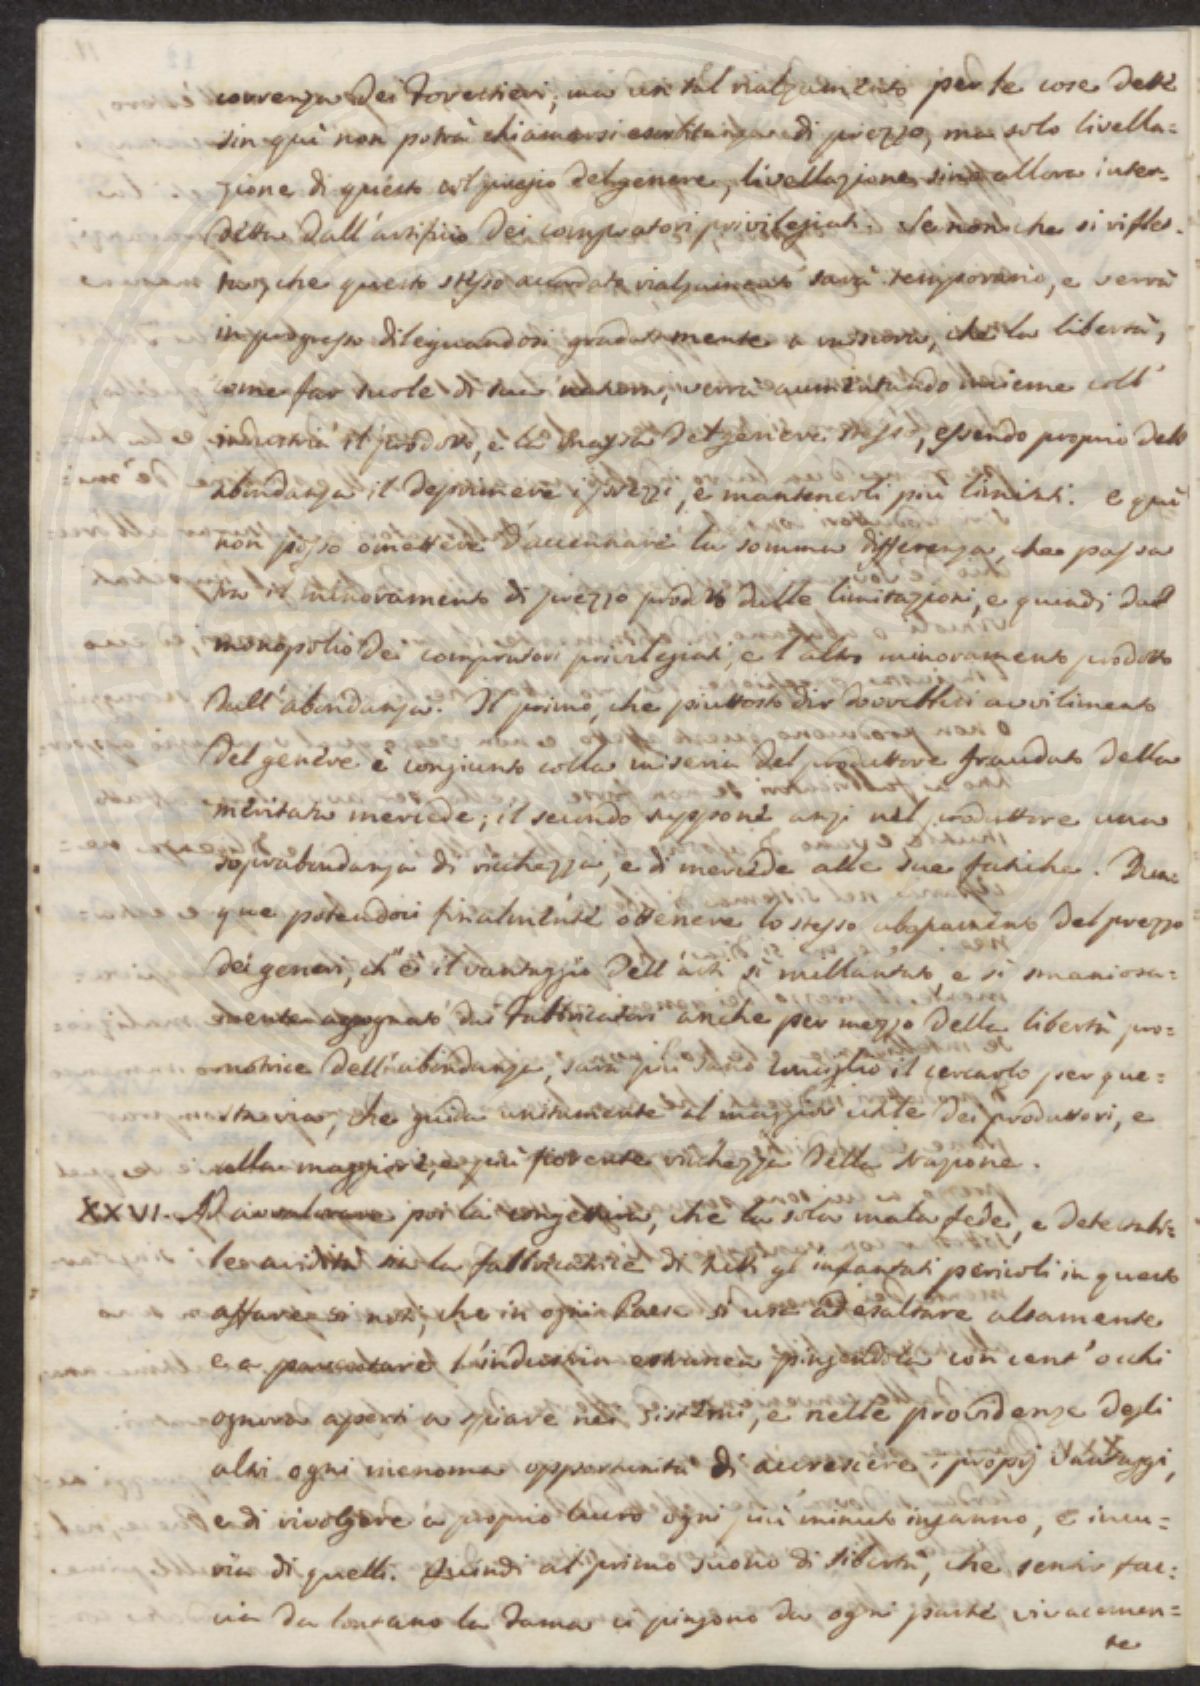 correnza dei Forestieri; ma un tal rialzamento per le cose dette
sin quì non potrà chiamarsi esorbitanza di prezzo, ma solo livella=
zione di questo col pregio del genere, livellazione sino allora inter=
detta dall'artificio dei compratori privilegiati. Se non che si riflet=
ta, che questo stesso accordato rialzamento sarà temporario, e verrà
in progresso dileguandosi gradatamente a misura, che la libertà,
come far suole di sua natura, verrà aumentando insieme coll'
industria il prodotto, e la massa del genere stesso, essendo proprio dell'
abondanza il deprimere i prezzi, e mantenerli più limitati. E quì
non posso omettere d'accennare la somma differenza, che passa
tra il minoramento di prezzo prodotto dalle limitazioni, e quindi dal
monopolio de' compratori privilegiati, e l'altro minoramento prodotto
dall'abondanza. Il primo, che piuttosto dir dovrebbesi avvilimento
del genere è congiunto colla miseria del produttore fraudato della
meritata mercede; il secondo suppone anzi nel produttore una
soprabondanza di ricchezza, e di mercede alle sue fatiche. Dun=
que potendosi finalmente ottenere lo stesso abbassamento del prezzo
dei generi, ch'è il vantaggio dell'arti sì millantato, e sì smaniosa=
mente agognato dai Fabbricatori anche per mezzo della libertà pro=
motrice dell'abondanza, sarà più sano consiglio il cercarlo per que=
sta via, che guida unitamente al maggior utile dei produttori, e
alla maggiore, e più fiorente ricchezza della Nazione.
XXVI. Ad avvalorare poi la congettura, che la sola mala fede, e detestabi=
le avidità sia la fabbricatrice di tutti gl'infantati pericoli in questo
affare si noti, che in ogni Paese si usa ad esaltare altamente
e a paventare l'industria estranea pingendola con cent'occhi
ognora aperti a spiare nei sistemi, e nelle providenze degli
altri ogni menoma opportunità di accrescere i proprj vantaggi,
e di rivolgere a proprio lucro ogni più minuto inganno, e incu=
ria di quelli. Quindi al primo suono di libertà, che sentir fac=
cia da lontano la Fama ci pingono da ogni parte vivacemen=
te